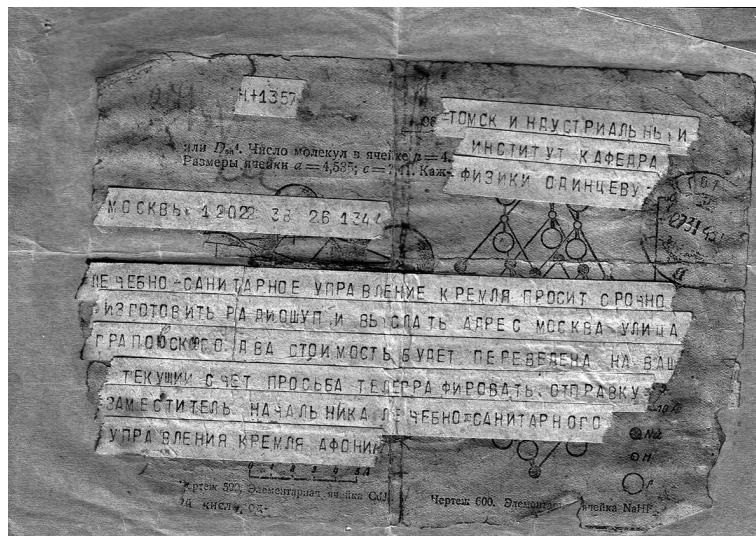 Ч+1357
ТОМСК ИНДУСТРИАЛЬНЫЙ
ИНСТИТУТ КАФЕДРА
или Число молекул в ячейке n = 4.
Размеры ячейки a = 4,535; c = 7,41. Каж-
ФИЗИКИ ОДИНЦЕВУ-
МОСКВЫ 12022 38 26 1344
ЛЕЧЕБНО-САНИТАРНОЕ УПРАВЛЕНИЕ КРЕМЛЯ ПРОСИТ СРОЧНО
ИЗГОТОВИТЬ РАДИОЩУП И ВЫСЛАТЬ АДРЕС МОСКВА УЛИЦА
ГРАНОВСКОГО ДВА СТОИМОСТЬ БУДЕТ ПЕРЕВЕДЕНА НА ВАШ
ТЕКУЩИЙ СЧЕТ ПРОСЬБА ТЕЛЕГРАФИРОВАТЬ ОТПРАВКУ
ЗАМЕСТИТЕЛЬ НАЧАЛЬНИКА ЛЕЧЕБНО=САНИТАРНОГО
УПРАВЛЕНИЯ КРЕМЛЯ АФОНИН
Na
H
F
Чертеж 599. Элементарная ячейка CdJ
Чертеж 600. ячейка NaHF